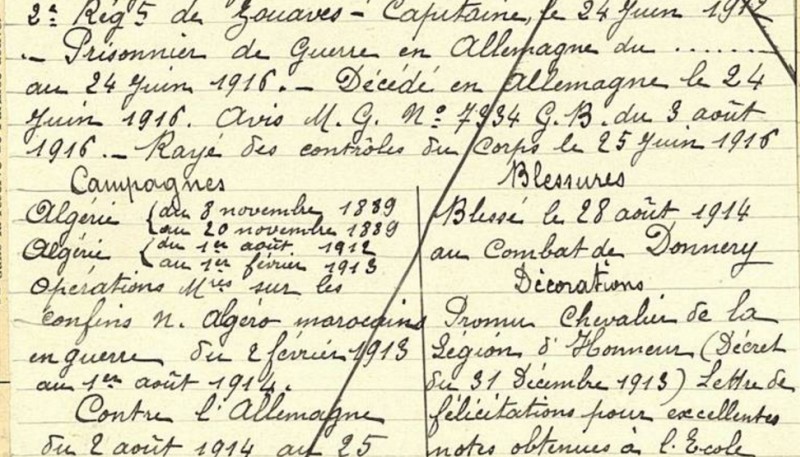 2e Rég5 de Zouaves - Capitaine, le 24 Juin 1912
- Prisonnier de Guerre en Allemagne du .......
au 24 Juin 1916. - Décédé en Allemagne le 24
Juin 1916. Avis M. G. No 7934 G.B. du 3 août
1916. - Rayé des contrôles du Corps le 25 Juin 1916
Campagnes
Algérie { du 8 novembre 1889
au 20 novembre 1889
Algérie { du 1er août 1912
au 1er février 1913
Opérations Mres sur les
confins n. Algéro marocains
en guerre du 2 février 1913
au 1er août 1914.
Contre l'Allemagne
du 2 août 1914 au 25
Blessures
Blessé le 28 août 1914
au Combat de Donnery
Décorations
Promu Chevalier de la
Légion d'Honneur (Décret
du 31 Décembre 1913) Lettre de
félicitations pour excellentes
notes obtenues à l'Ecole